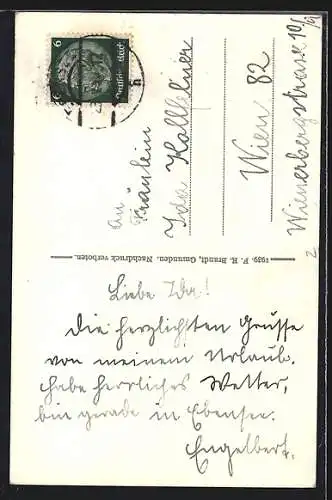 Liebe Ida!
die herzlichsten Grüsse
von meinem Urlaub.
habe herrliches Wetter,
bin gerade in Ebensee.
Engelbert.
1939. F. E. Brandt, Gmunden. Nachdruck verboten.
An
Fräulein
Ida
Wien 82
Wienerbergstrasse
6
Deutsches Reich